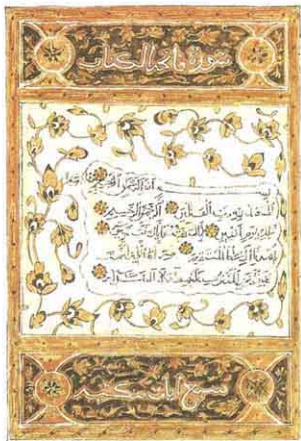 سورة فاتحة الكتاب
بسم الله الرحمن الرحيم الحمد
لله رب العالمين الرحمن الرحيم
ملك يوم الدين إياك نعبد وإياك نستعين
اهدنا الصراط المستقيم صراط الذين أنعمت
عليهم غير المغضوب عليهم ولا الضالين
سبع آيات مكية